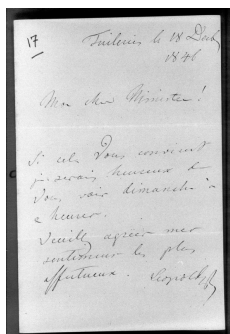 17
Tuileries le 18 Dec
1846
Mon cher Ministre!
Si cela Vous convient
je serais heureux de
Vous voir dimanche à
2 heures.
Veuillez agréer mes
sentimens les plus
affectueux. Leopold